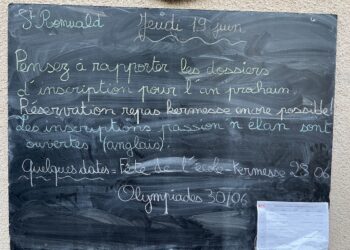 St Romuald Jeudi 19 juin
Pensez à rapporter les dossiers
d'inscription pour l'an prohain.
Réservation repas kermesse encore possible!
Les inscriptions passion'n élan sont
ouvertes (anglais).
Quelques dates = Fête de l'école-Kermesse 28 06
Olympiades 30/06